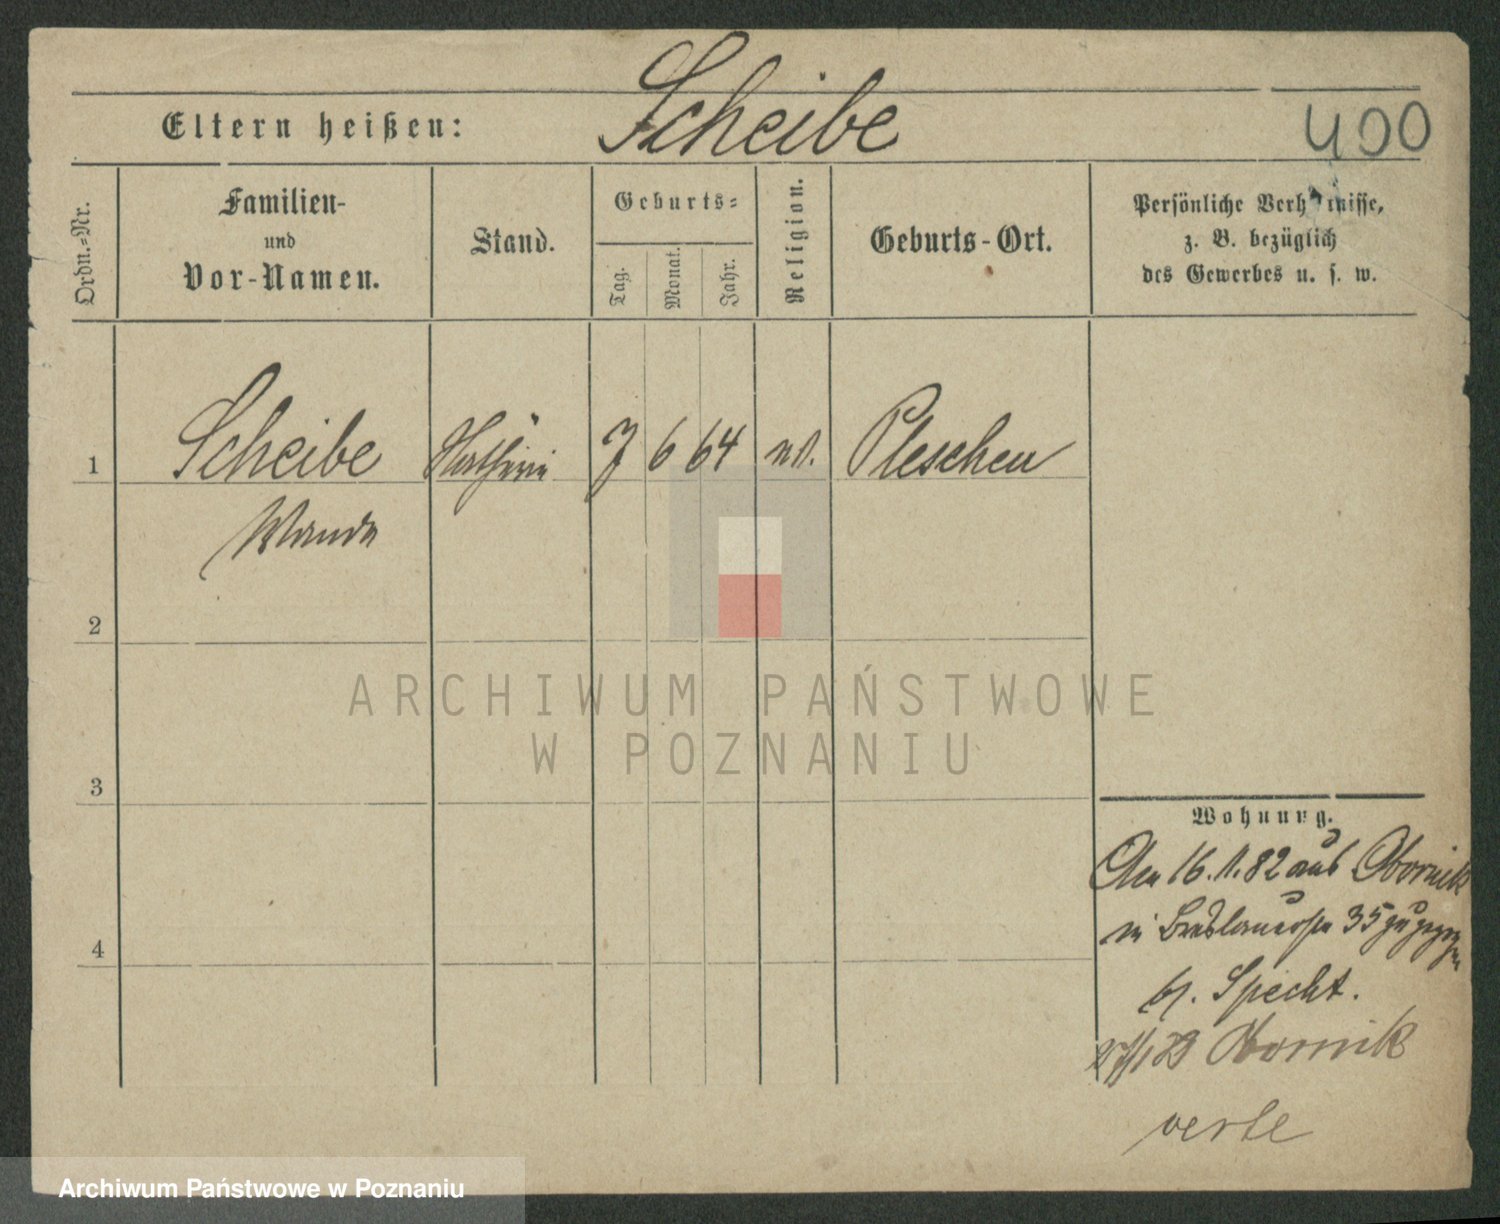 Scheibe
Eltern heißen:
400
Ordn.-Nr.
Familien-
und
Vor-Namen.
Stand.
Geburts-
Tag.
Monat.
Jahr.
Religion.
Geburts-Ort.
Persönliche Verhältnisse,
z. B. bezüglich
des Gewerbes u. s. w.
1 Scheibe 7 6 64 Pleschen
Wanda
2
3
4
Wohnung.
Den 16. 1. 82 aus Obornik
in Breslauerstr 35 zugezogen
b. Specht.
Obornik
verte
ARCHIWUM PAŃSTWOWE
W POZNANIU
Archiwum Państwowe w Poznaniu